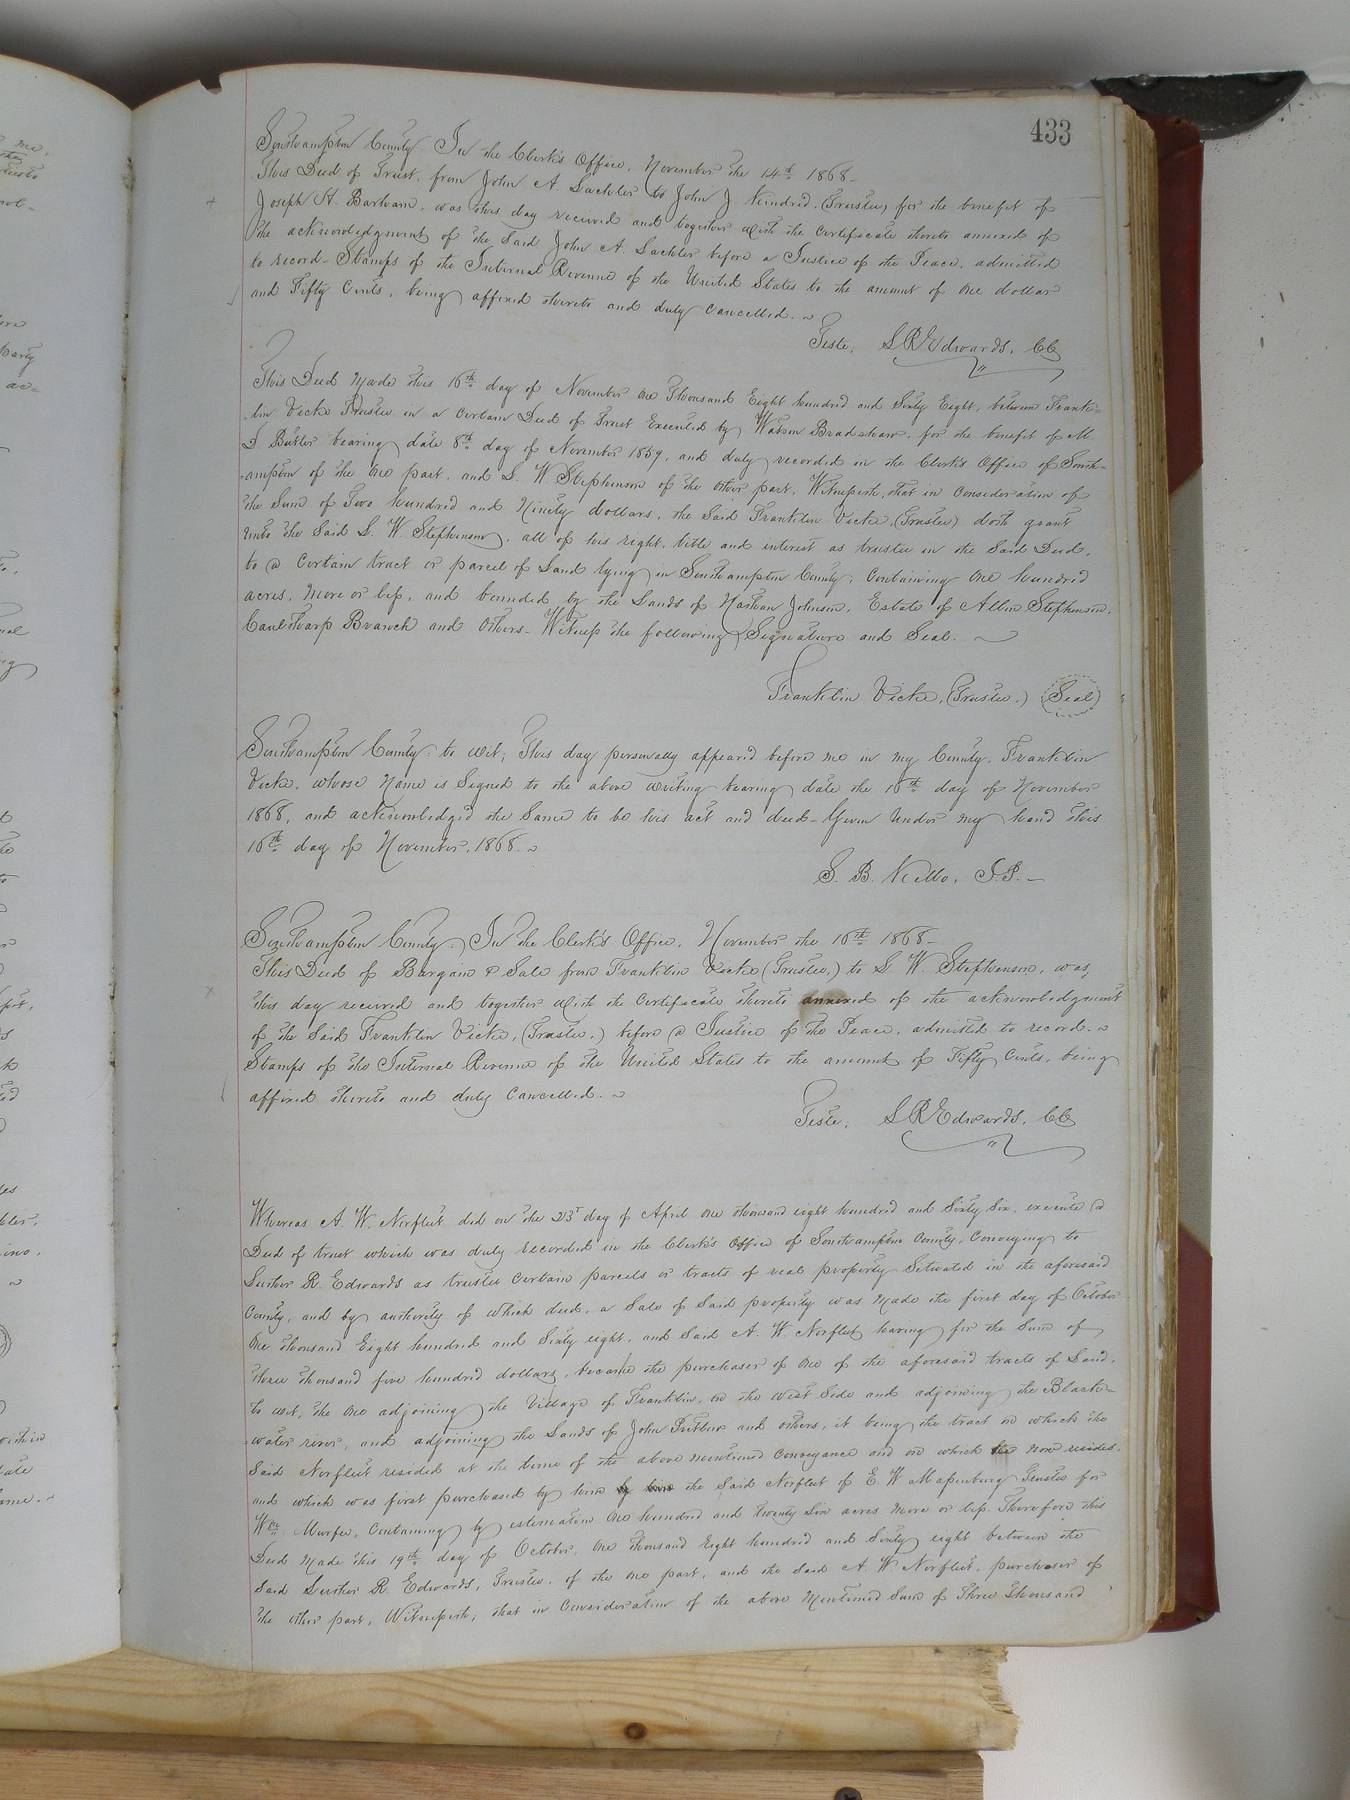 433
Southampton County. In the Clerk's Office, November the 14th 1868-
This Deed of Trust, from John A. Lachler to John J. Kindred, (Trustee) for the benefit of
Joseph H. Barham, was this day received and together with the Certificate thereto annexed of
the acknowledgment of the Said John A. Lachler before a Justice of the Peace, admitted
to record- Stamps of the Internal Revenue of the United States to the amount of One dollar
and Fifty Cents, being affixed thereto and duly Cancelled.
Teste, L R Edwards, CC
This Deed Made this 16th day of November One Thousand Eight hundred and Sixty Eight, between Frank-
-lin Vick Trustee in a Certain Deed of Trust Executed by Watson Bradshaw, for the benefit of M
D. Butler bearing date 8th day of November 1859, and duly recorded in the Clerk's Office of South-
-ampton of the One part, and S. W. Stephenson of the other part, Witnesseth, that in Consideration of
the Sum of Two hundred and Ninety dollars, the Said Franklin Vick, (Trustee) doth grant
unto the Said S. W. Stephenson, all of his right, title and interest as trustee in the Said Deed,
to a Certain tract or parcel of Land lying in Southampton County, Containing One hundred
acres, More or less, and bounded by the Lands of Nathan Johnson, Estate of Allen Stephenson,
Caultharp Branch and Others- Witness the following Signature and Seal.
Franklin Vick, (Trustee,) (Seal)
Southampton County to wit; This day personally appeared before me in my County, Franklin
Vick, whose Name is Signed to the above writing bearing date the 16th day of November
1868, and acknowledged the Same to be his act and deed- Given Under my hand this
16th day of November, 1868.
S. B. Kello, J.P.-
Southampton County, In the Clerk's Office, November the 16th 1868-
This Deed of Bargain & Sale from Franklin Vick (Trustee,) to S. W. Stephenson, was,
this day received and together with the Certificate thereto annexed of the acknowledgment
of the Said Franklin Vick, (Trustee,) before a Justice of the Peace, admitted to record.
Stamps of the Internal Revenue of the United States to the amount of Fifty Cents, being
affixed thereto and duly Cancelled.
Teste, L R Edwards, CC
Whereas A. W. Norfleet did on the 23d day of April One thousand eight hundred and Sixty Six, execute a
Deed of trust which was duly recorded in the Clerk's Office of Southampton County, Conveying to
Luther R. Edwards as trustee Certain parcels or tracts of real property Situated in the aforesaid
County, and by authority of which deed, a Sale of Said property was Made the first day of October
One thousand Eight hundred and Sixty eight, and Said A. W. Norfleet having for the Sum of
three thousand five hundred dollars, became the purchaser of One of the aforesaid tracts of Land,
to wit; the One adjoining the Village of Franklin, on the west Side and adjoining the Black-
-water river, and adjoining the Lands of John Pretlow and others, it being the tract on which the
Said Norfleet resided at the time of the above mentioned Conveyance and on which he now resides,
and which was first purchased by him by him the Said Norfleet of E. W. Massenburg Trustee for
Wm Murfee, Containing by estimation One hundred and twenty Six acres More or less. Therefore this
Deed Made this 19th day of October, One thousand Eight hundred and Sixty eight between the
Said Luther R. Edwards, Trustee, of the One part, and the Said A. W. Norfleet, purchaser of
the other part, Witnesseth, that in Consideration of the above Mentioned Sum of Three thousand